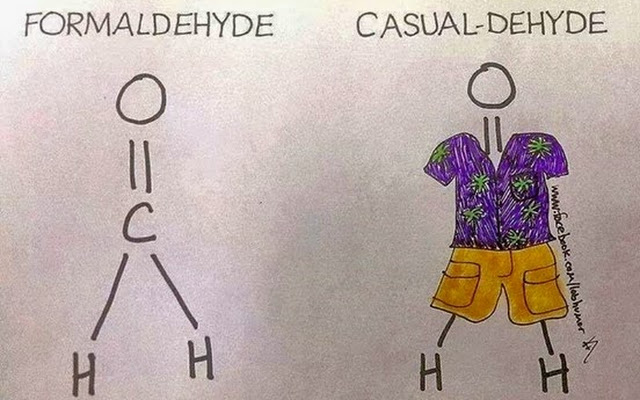 FORMALDEHYDE
O
||
C
H
H
CASUAL-DEHYDE
O
||
H
H
www.facebook.com/labhumor